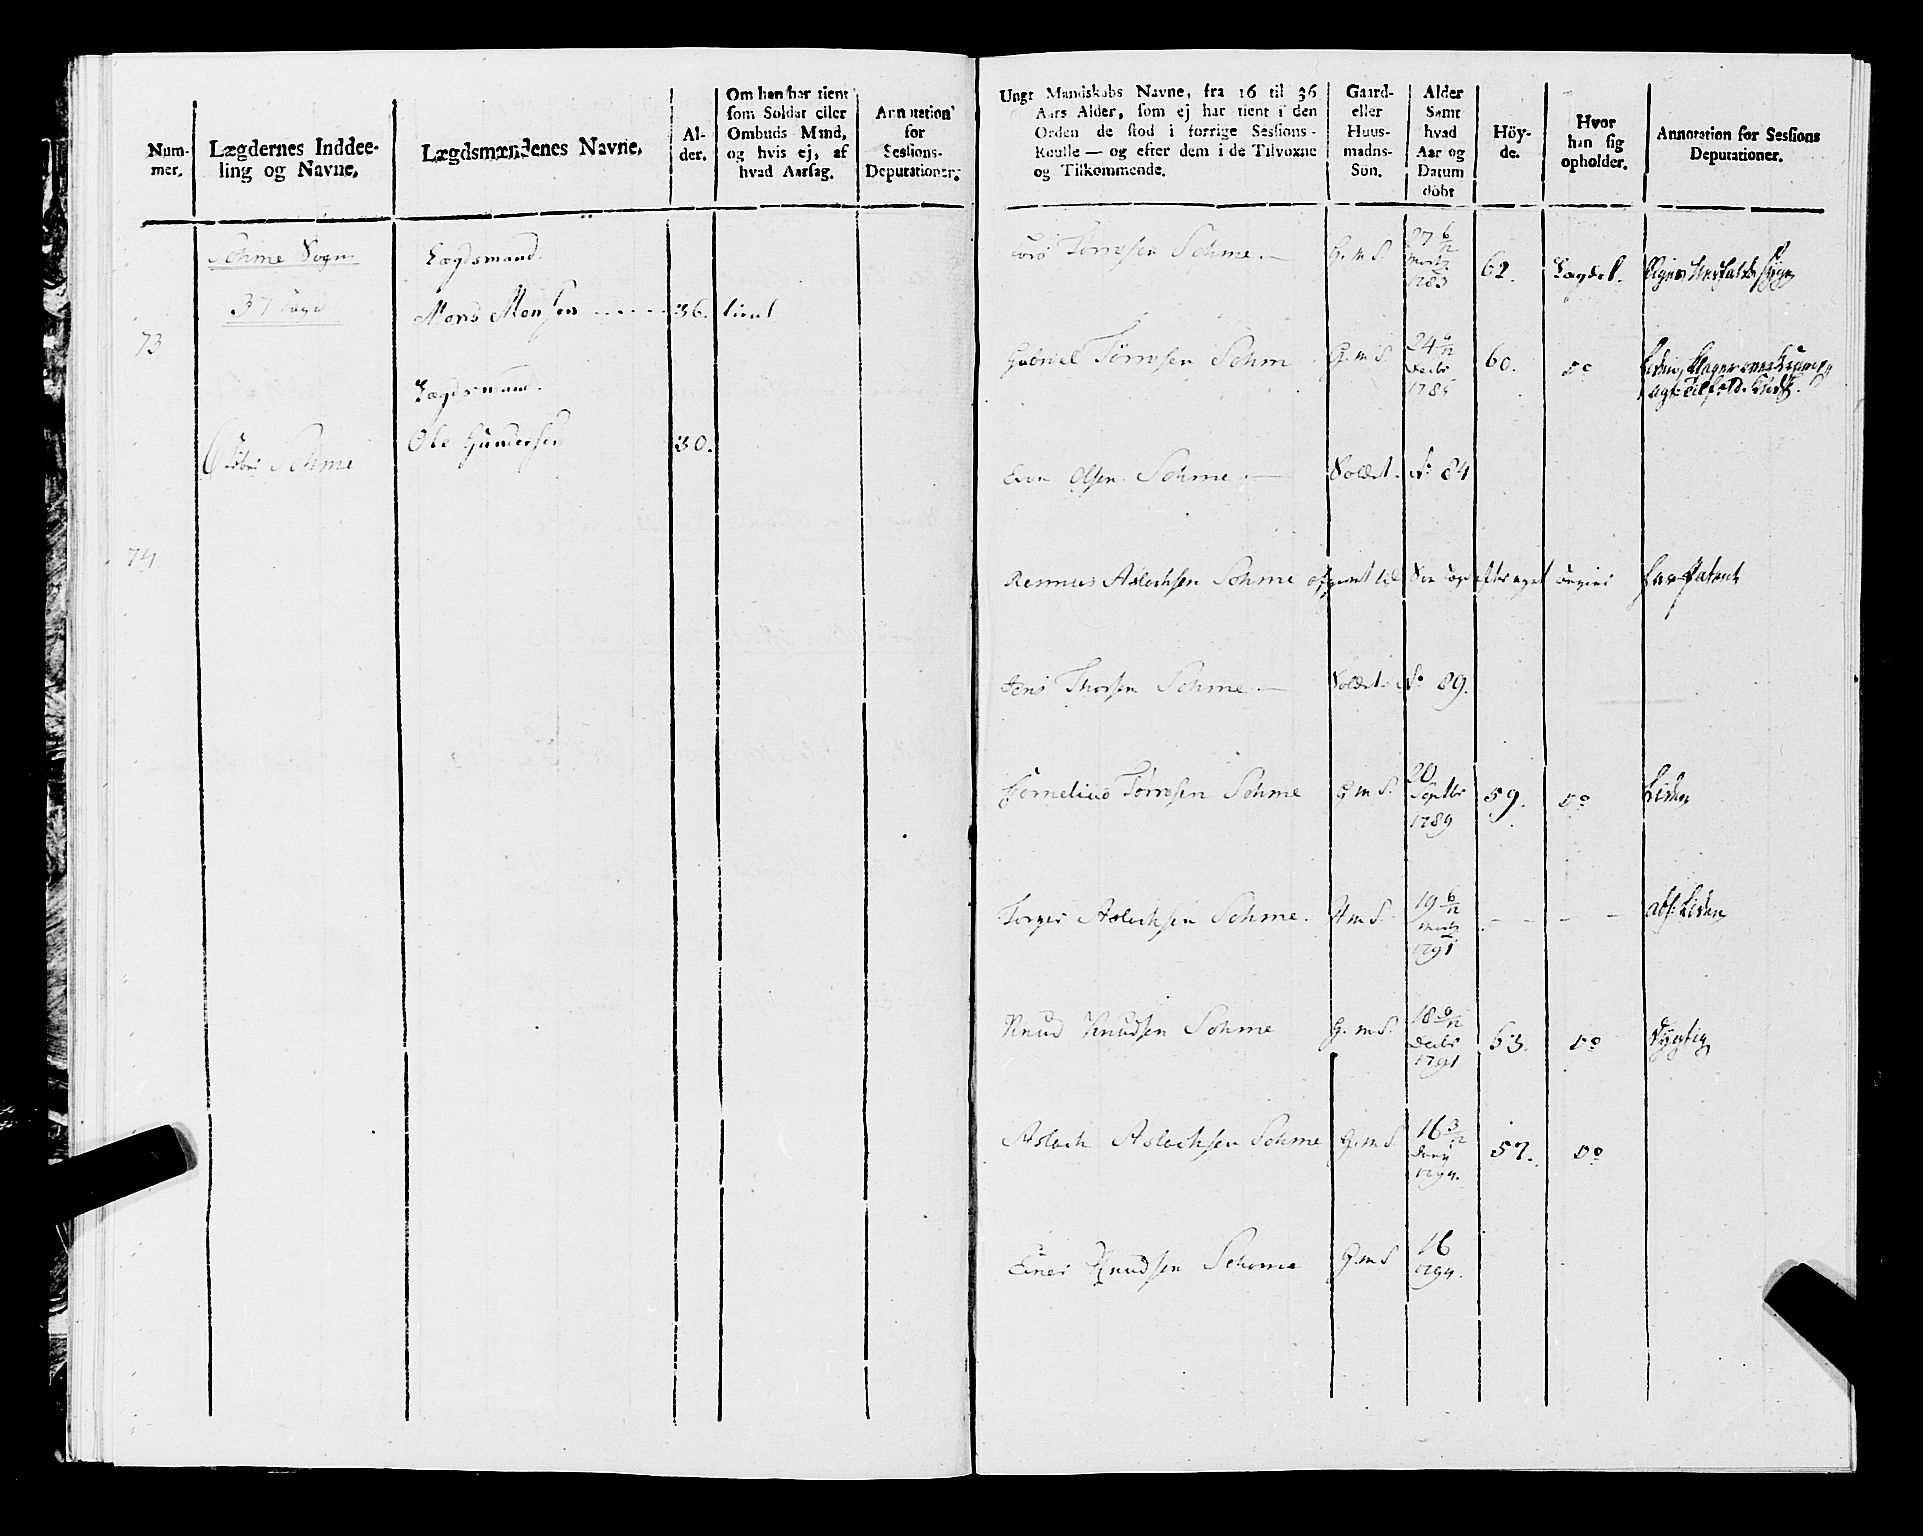 Num-
mer.
Lægdernes Inddee-
ling og Navne.
Lægdsmændenes Navne.
Al-
der.
Om han har tient
som Soldat eller
Ombuds Mand,
og hvis ej, af
hvad Aarsag.
Annotation
for
Sessions-
Deputationer.
Sohme Sogn
37 Lægd
73
Lægdsmand.
Mons Monsen 36. tient
Lægdsmand.
Ole Gundersen 30.
Sohme
74
Ungt Mandskabs Navne, fra 16 til 36
Aars Alder, som ej har tient i den
Orden de stod i forrige Sessions-
Roulle — og efter dem i de Tilvoxne
og Tilkommende.
Gaard-
eller
Huus-
mands-
Sön.
Alder
Samt
hvad
Aar og
Datum
döbt
Höy-
de.
Hvor
han sig
opholder.
Annotation for Sessions
Deputationer.
Tørresen Sohme. — G. m S. 27 6/12 62. Lægdet.
1783
Gabriel Tørresen Sohm G. m S. 24 60. Do
Decbr
1785
Even Olsen Sohme. — Soldat No 84
Rasmus Aslachsen Sohme
Jens Thorsen Sohme — Soldat No 89.
Cornelius Tørresen Sohme G m S. 20 59. Do Liden
Septbr
1789
Torger Aslachsen Sohme. G m S. 19 6/12 — — — Liden
1791
Knud Knudsen Sohme G. m S. 18 63. Do Dygtig
Decbr
1791
Aslach Aslachsen Sohme G. m S 16 3/12 57. Do
1794.
Einer Knudsen Sohme G. m S 16
1794.